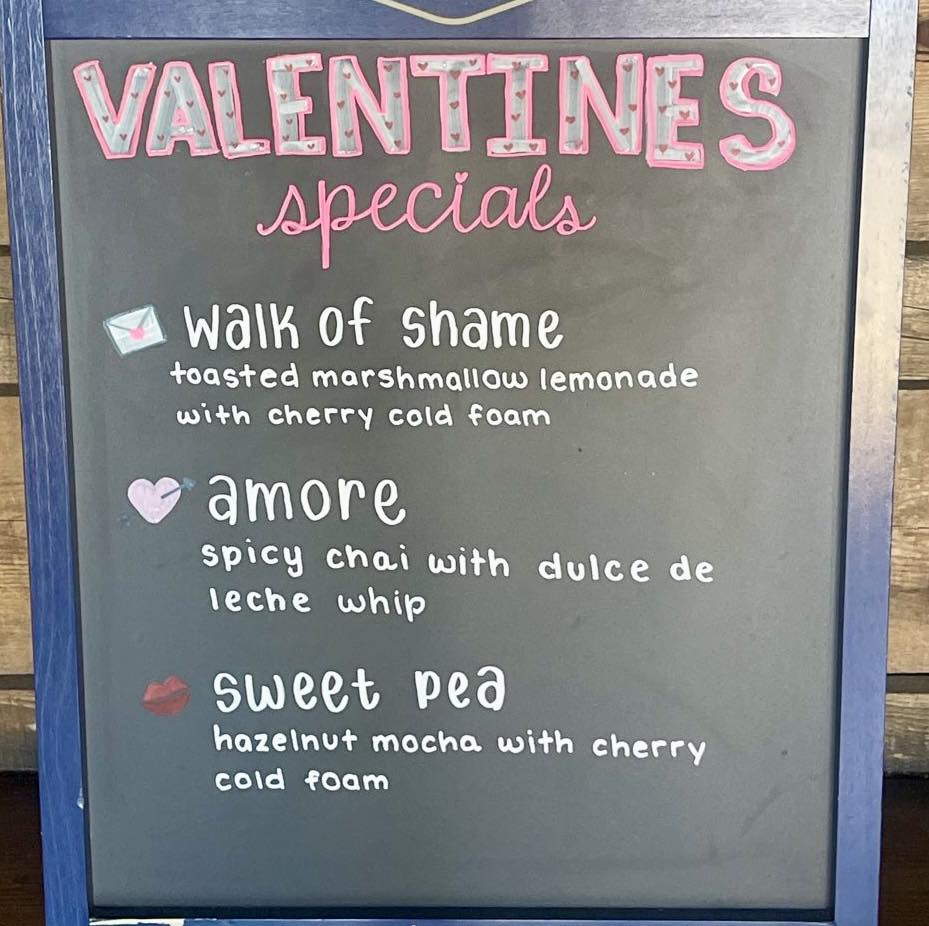 VALENTINES
specials
walk of shame
toasted marshmallow lemonade
with cherry cold foam
amore
spicy chai with dulce de
leche whip
sweet pea
hazelnut mocha with cherry
cold foam